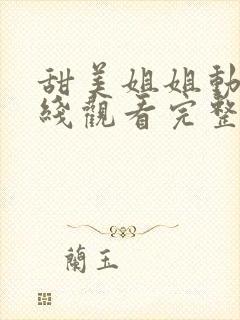 甜美姐姐動
綫觀看完整
蘭玉